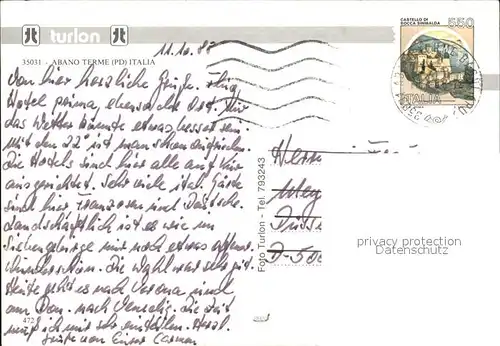 turlon
35031 - ABANO TERME (PD) ITALIA
11.10.87
CASTELLO DI
ROCCA SINIBALDA
550
ITALIA
Von hier herzliche Grüße. Flug
Hotel prima ebenso der Ort. Nur
das Wetter könnte etwas besser sein.
Mit den 22° ist man schon zufrieden.
Die Hotels sind hier alle auf Kur
ausgerichtet. Sehr viele ital. Gäste
sind hier, Franzosen und Deutsche.
Landschaftlich ist es wie im
Siebengebirge nur noch etwas
wunderschön. Die Wahl war sehr gut.
Heute geht es nach Verona und
am Don. nach Venedig. Die Zeit
muß ich mir sehr einteilen. Herzl.
Grüße von Carmen
Herrn
D-500
Foto Turlon - Tel. 793243
472
privacy protection
Datenschutz